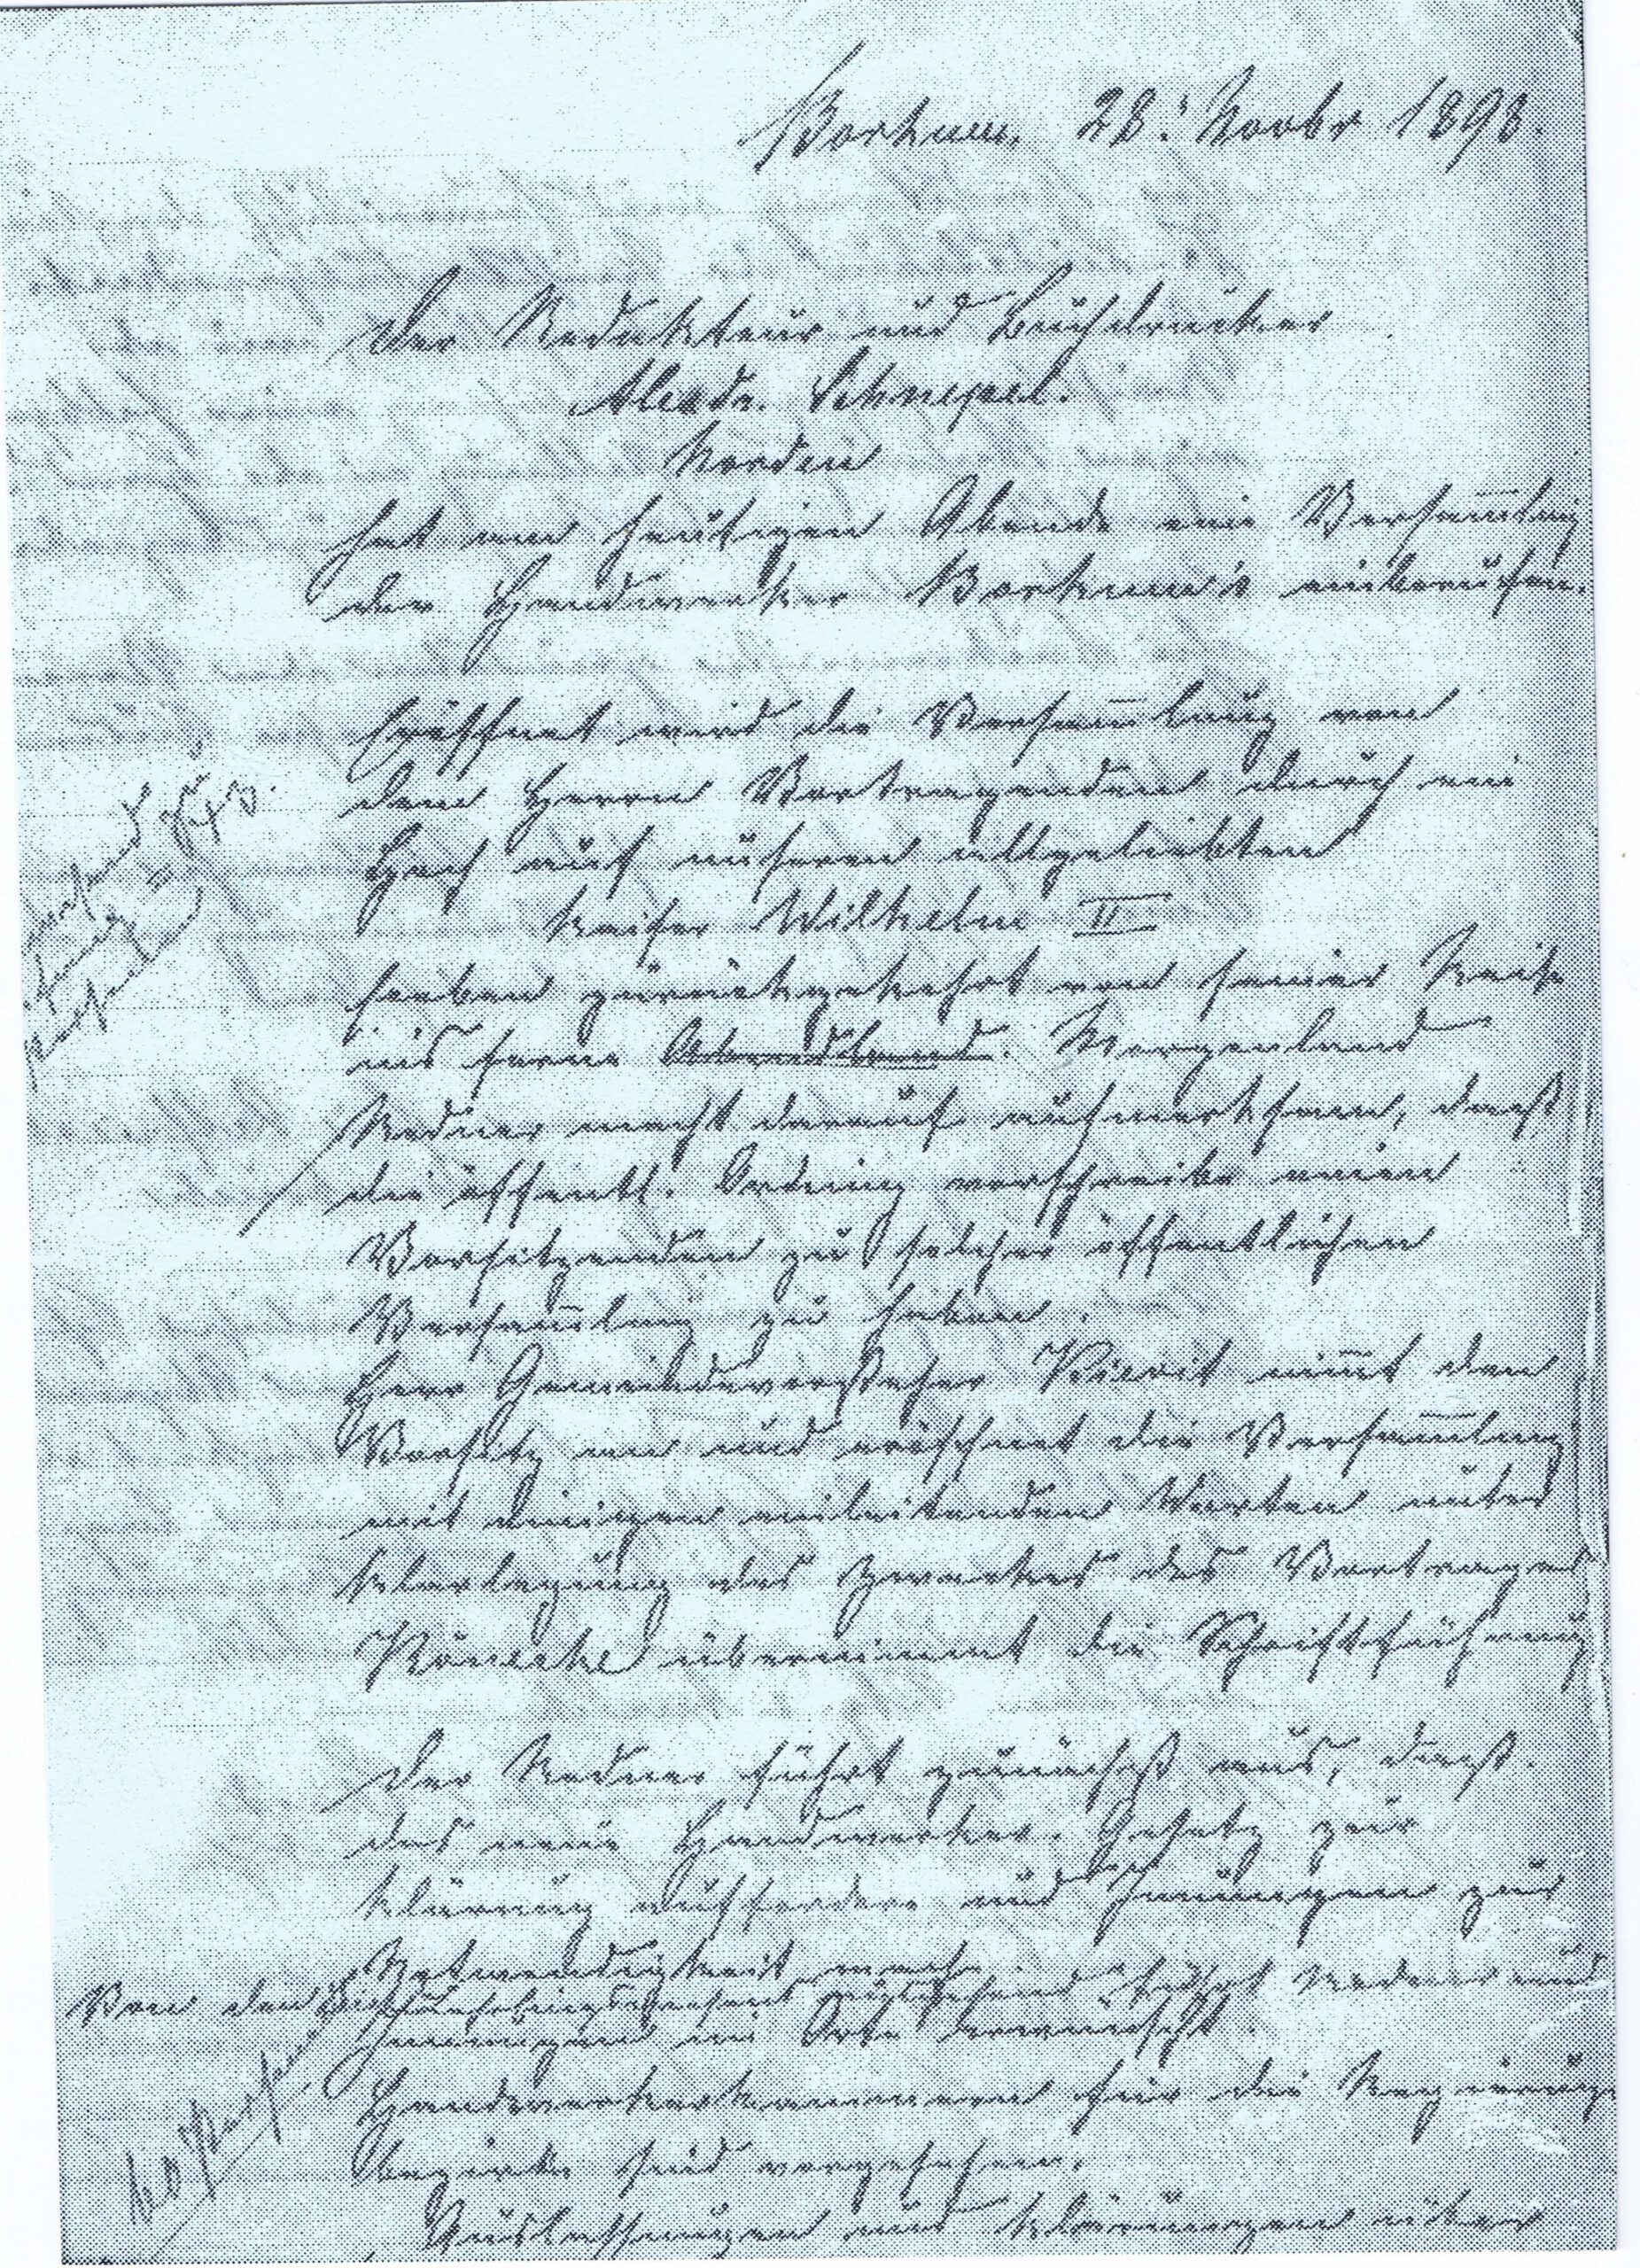 Borkum, 28: Novbr 1898.
Der Redakteur und Buchdrucker
Alexdr. Schnepel.
Norden
hat am heutigen Abende eine Versam̅lung
der Handwerker Borkum's einberufen.
Eröffnet wird die Versam̅lung von
dem Herrn Vortragenden durch ein
Hoch auf unseren allgeliebten
Kaiser Wilhelm II
soeben zurückgekehrt von seiner Reise
ins ferne Abendland. Morgenland
Redner macht darauf aufmerksam, daß
die öffentl. Ordnung vorschreibe einen
Vorsitzenden zu solcher öffentlichen
Versam̅lung zu haben.
Herr Gemeindevorsteher Kieviet nim̅t den
Vorsitz an und eröffnet die Versam̅lung
mit einigen einleitenden Worten unter
Klarlegung des Zweckes des Vortrages
übernimmt die Schriftführung
Der Redner führt zunächst aus, daß
das neue Handwerker-Gesetz zur
Klärung auffordere und Innungen zur
Notwendigkeit mache.
Von den ausgehend, Redner
Innungen im Orte erwünscht.
Handwerkerkammern für die Regierungs
bezirke sind vorgesehen.
Auslassungen und Klärungen über